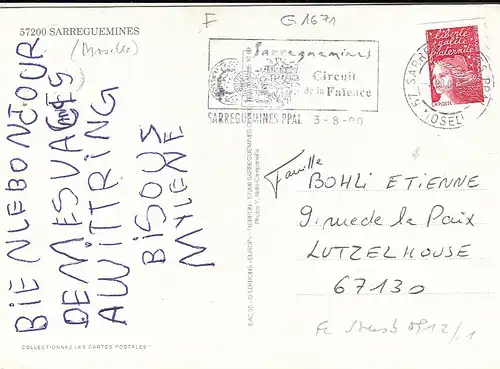 F
G1671
57200 SARREGUEMINES
(Moselle)
Sarreguemines
Circuit
de la Faïence
SARREGUEMINES PPAL 3-8-00
liberté
égalité
fraternité
LA POSTE
57 SARREG PPAL
MOSEL
BIENLE BONJOUR
DE MES VACES
A WITTRING
BISOUS
MYLENE
Famille
BOHLI ETIENNE
9. rue de la Paix
LUTZELHOUSE
67130
COLLECTIONNEZ LES CARTES POSTALES